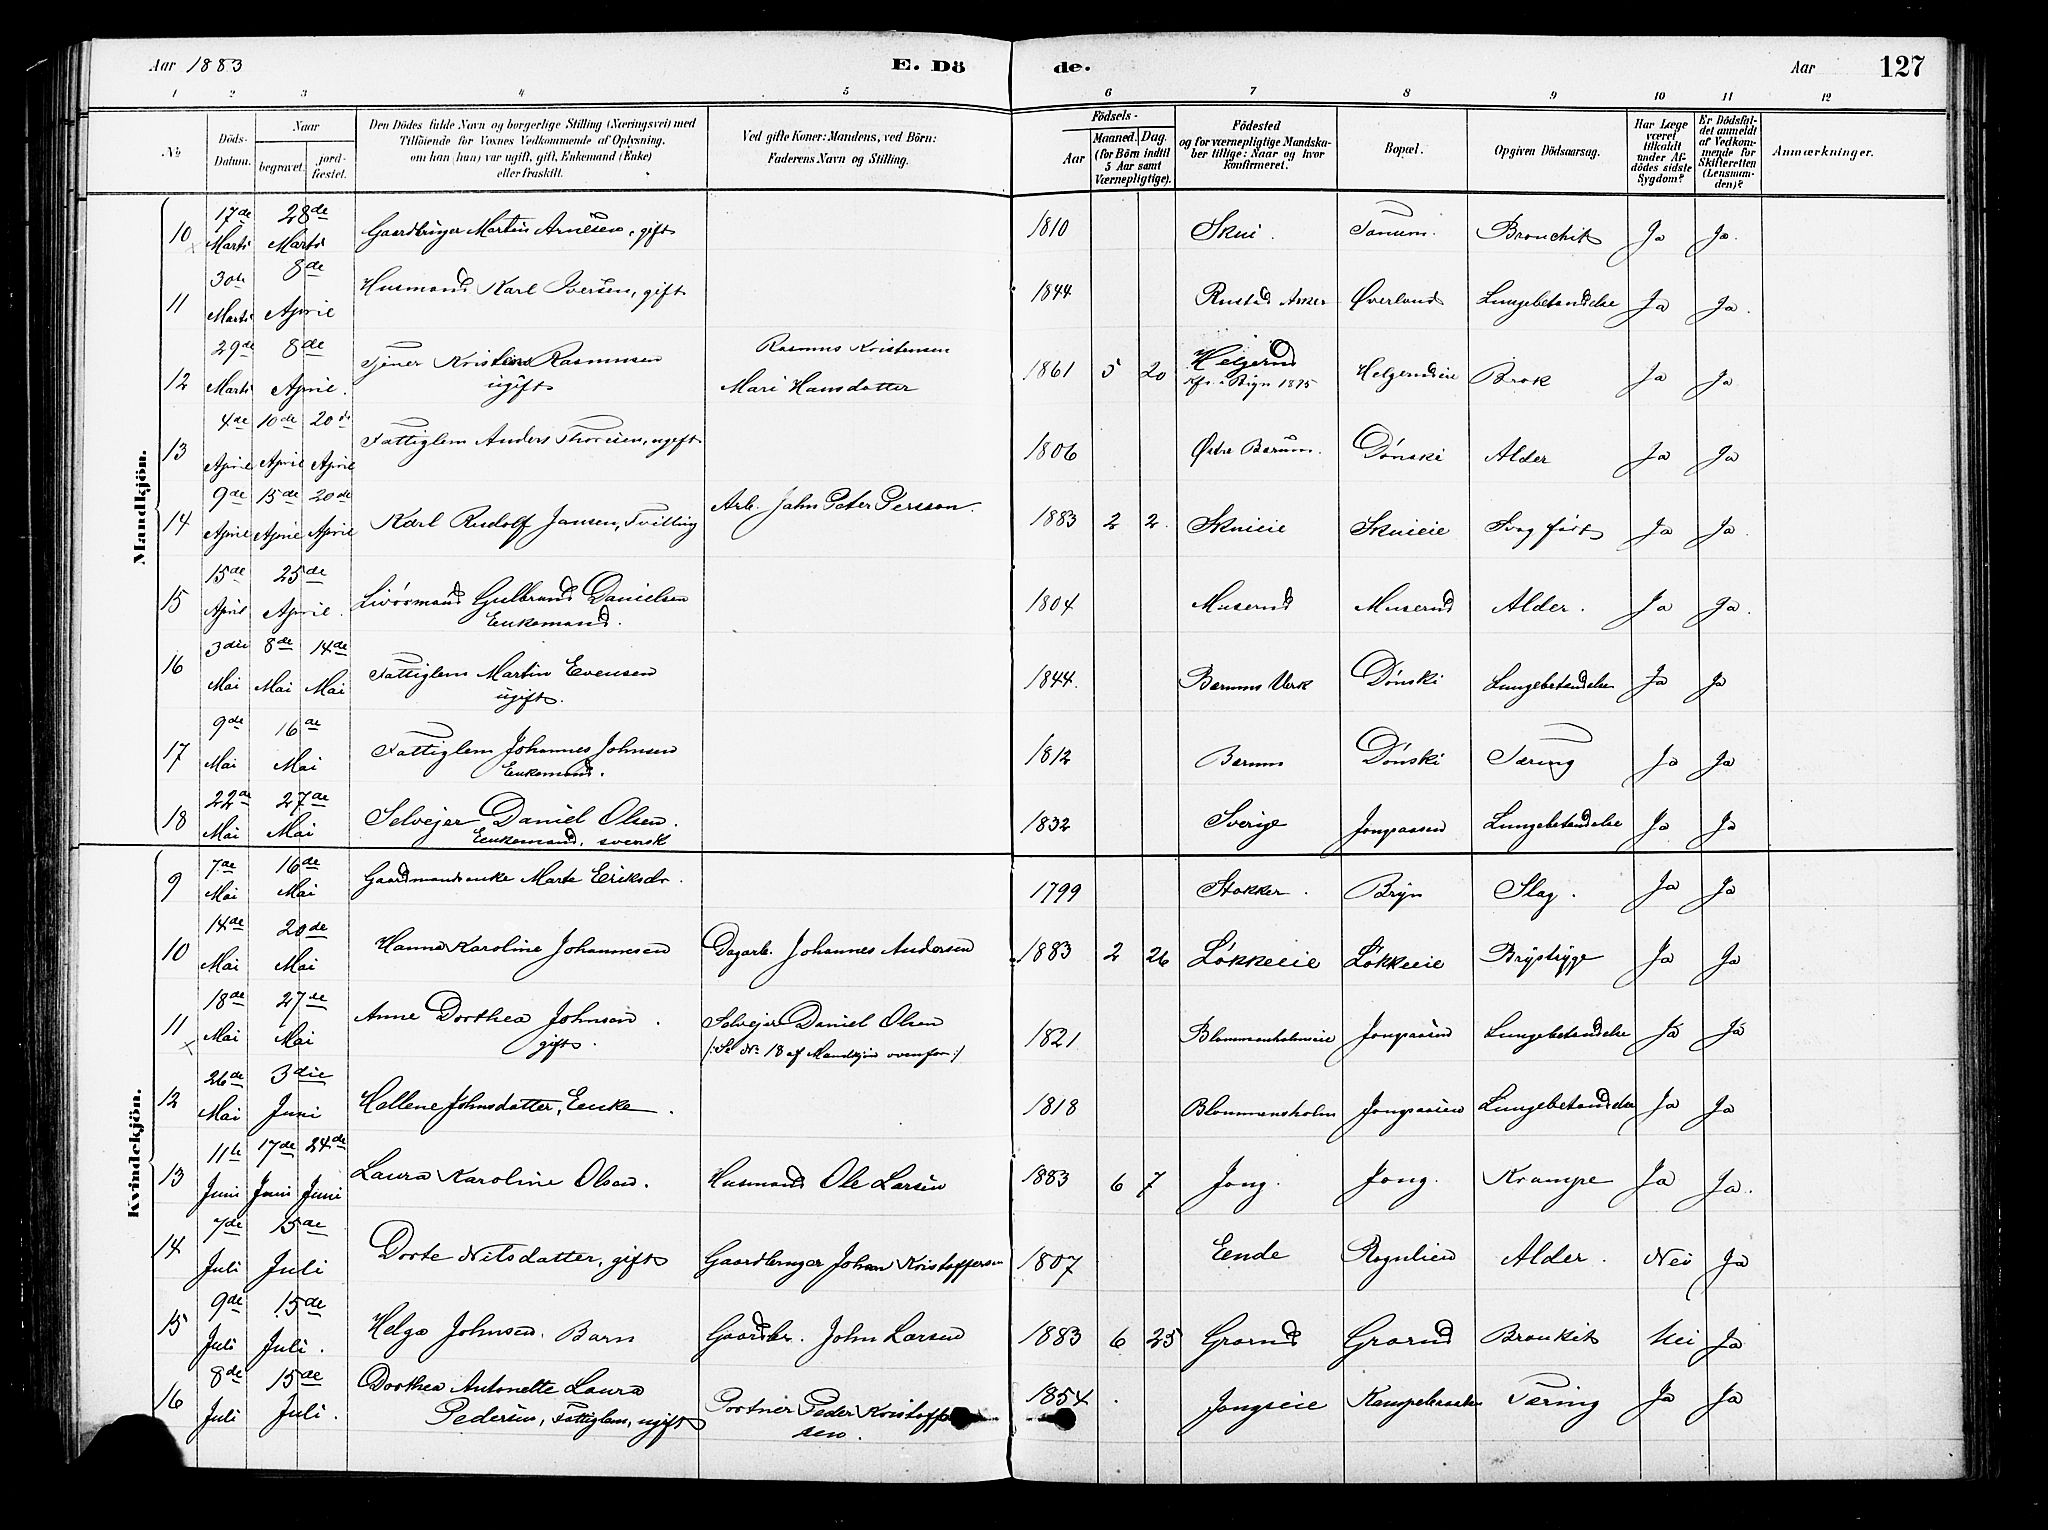 Aar 1883 E. Dö de. Aar 127
1 2 3 4 5 6 7 8 9 10 11 12
No
Döds-Datum.
Naar
begravet.
jordfæstet.
Den Dödes fulde Navn og borgerlige Stilling (Næringsvei) med
Tilföiende for Voxnes Vedkommende af Oplysning,
om han (hun) var ugift, gift, Enkemand (Enke)
eller fraskilt.
Ved gifte Koner: Mandens, ved Börn:
Faderens Navn og Stilling.
Födsels-
Aar
Maaned. Dag.
(for Börn indtil
5 Aar samt
Værnepligtige).
Födested
og for værnepligtige Mandskaber tillige: Naar og hvor
konfirmeret.
Bopæl.
Opgiven Dödsaarsag.
Har Læge
været
tilkaldt
under Afdödes sidste
Sygdom?
Er Dödsfaldet anmeldt
af Vedkommende for
Skifteretten
(Lensmanden)?
Anmærkninger.
Mandkjön.
10 17de Marts 28de Marts Gaardbruger Martin Arnesen, gift 1810 Skui. Tanum. Bronchit Ja Ja.
11 30te Marts 8de April Husmand Karl Iversen, gift 1844 Rustad Asker Øverland Lungebetændelse Ja Ja.
12 29de Marts 8de April. Tjener Kristian Rasmusen ugift Rasmus Kristensen Mari Hansdatter 1861 5 20 Helgerud Kfr. i Bryn 1875 Helgerudeie Brok Ja Ja
13 4de April 10de April 20de April Fattiglem Anders Thoresen, ugift 1806 Østre Bærum. Dønski Alder Ja Ja
14 9de April 15de April 20de April Karl Rudolf Jansen, Tvilling Arb. Jahn Peter Persson. 1883 2 2. Skuieie Skuieie Svag født Ja Ja.
15 15de April 25de April. Livørmand Gulbrand Danielsen Enkemand. 1804 Muserud Muserud Alder. Ja Ja.
16 3die Mai 8de Mai 14de Mai Fattiglem Martin Evensen ugift. 1844. Bærums Verk Dønski Lungebetændelse Ja Ja
17 9de Mai 16de Mai Fattiglem Johannes Johnsen Enkemand. 1812 Bærum Dønski Tæring Ja Ja
18 22de Mai 27de Mai Selvejer Daniel Olsen. Enkemand, svensk 1832 Sverige Jongsaasen Lungebetændelse Ja Ja
Kvindekjön.
9 7de Mai 16de Mai Gaardmandsenke Marte Eriksdr. 1799 Stokker. Bryn Slag. Ja Ja
10 14de Mai 20de Mai Hanna Karoline Johannesen Dagarb. Johannes Andersen 1883 2 26 Løkkeeie Løkkeeie Brystsyge Ja Ja
11 18de Mai 27de Mai Anne Dorthea Johnsen. gift. Selvejer Daniel Olsen /:Se No 18 af Mandkjøn ovenfor:/ 1821 Blommenholmeie Jongsaasen Lungebetændelse Ja Ja
12 26de Mai 3die Juni Hellene Johnsdatter, Enke. 1818 Blommensholm Jongsaasen Lungebetændelse Ja Ja
13 11te Juni 17de Juni 24de Juni Laura Karoline Olsen. Husmand Ole Larsen 1883 6 7 Jong. Jong. Krampe Ja Ja.
14 7de Juli 15de Juli Dorte Nilsdatter, gift Gaardbruger Johan Kristoffersen 1807 Eende Alder. Nei Ja
15 9de Juli 15de Juli. Helga Johnsen. Barn Gaardbr. John Larsen 1883 6 25 Grorud Grorud Bronkit Nei Ja
16 8de Juli 15de Juli. Dorthea Antonette Laura Pedersen, Fattiglem, ugift Portner Peder Kristoffersen. 1854. Jongseie Tæring Ja Ja